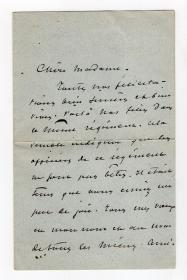 Chère Madame.
Toutes nos félicita-
tions bien sincères et bien
vives. Voilà nos fils dans
le même régiment. Cela
semble indiquer que les
officiers de ce régiment
ne sont pas bêtes. Il était
temps que nous ayons un
peu de joie. Tous mes vœux
en mon nom et au nom
de tous les miens.